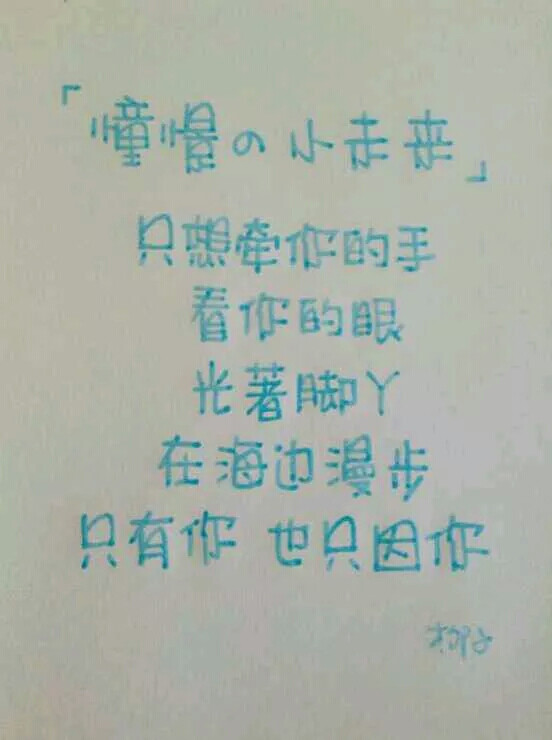 「憧憬の小走来」
只想牵你的手
看你的眼
光著脚丫
在海边漫步
只有你 也只因你